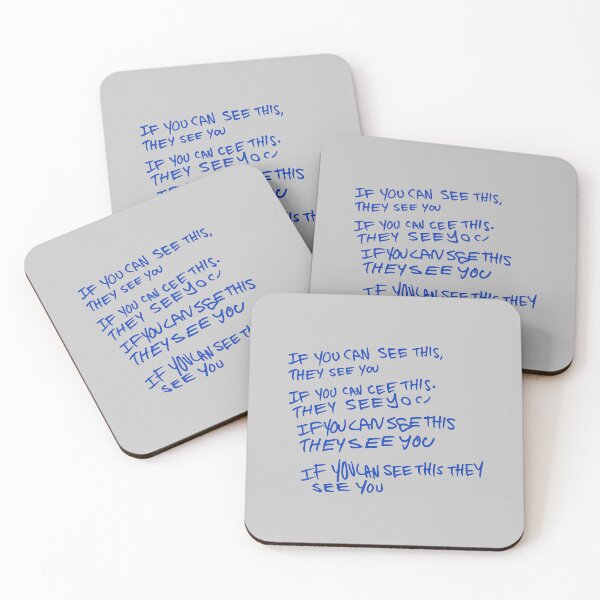 IF YOU CAN SEE THIS,
THEY SEE YOU
IF YOU CAN CEE THIS.
THEY SEE YOU
THIS
THIS
IF YOU CAN SEE THIS,
THEY SEE YOU
IF YOU CAN CEE THIS.
THEY SEE YOU
IF YOU CAN SEE THIS
THEY SEE YOU
IF YOU CAN SEE THIS THEY
IF YOU CAN SEE THIS,
THEY SEE YOU
IF YOU CAN CEE THIS.
THEY SEE YOU
IF YOU CAN SEE THIS
THEY SEE YOU
IF YOU CAN SEE
SEE YOU
IF YOU CAN SEE THIS,
THEY SEE YOU
IF YOU CAN CEE THIS.
THEY SEE YOU
IF YOU CAN SEE THIS
THEY SEE YOU
IF YOU CAN SEE THIS THEY
SEE YOU